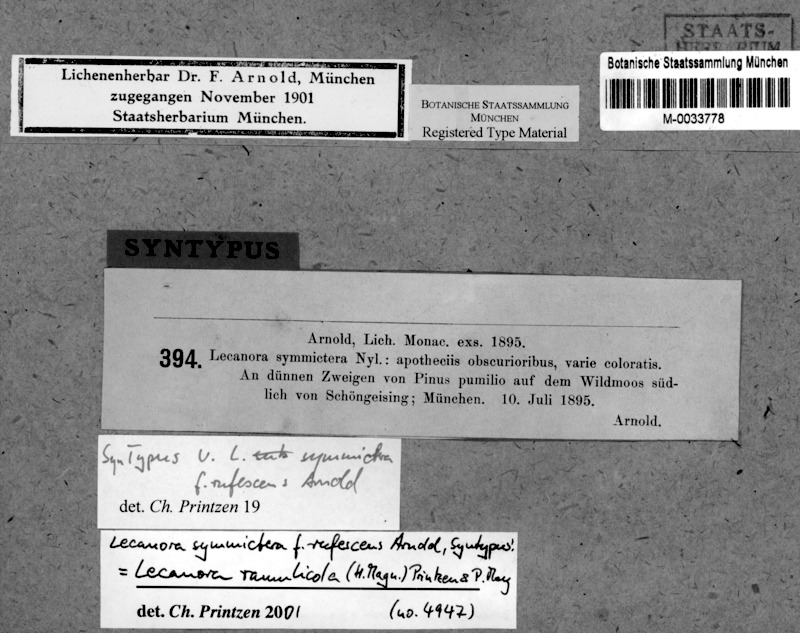 STAATS-
HERBARIUM
Botanische Staatssammlung München
M-0033778
Lichenenherbar Dr. F. Arnold, München
zugegangen November 1901
Staatsherbarium München.
BOTANISCHE STAATSSAMMLUNG
MÜNCHEN
Registered Type Material
SYNTYPUS
Arnold, Lich. Monac. exs. 1895.
394. Lecanora symmictera Nyl.: apotheciis obscurioribus, varie coloratis.
An dünnen Zweigen von Pinus pumilio auf dem Wildmoos süd-
lich von Schöngeising; München. 10. Juli 1895.
Arnold.
SynTypus v. L. symmictra
f. rufescens Arnold
det. Ch. Printzen 19
Lecanora symmictera f. rufescens Arnold, Syntypus!
= Lecanora ramulicola (H. Magn.) Printzen & P. May
det. Ch. Printzen 2001 (no. 4947)